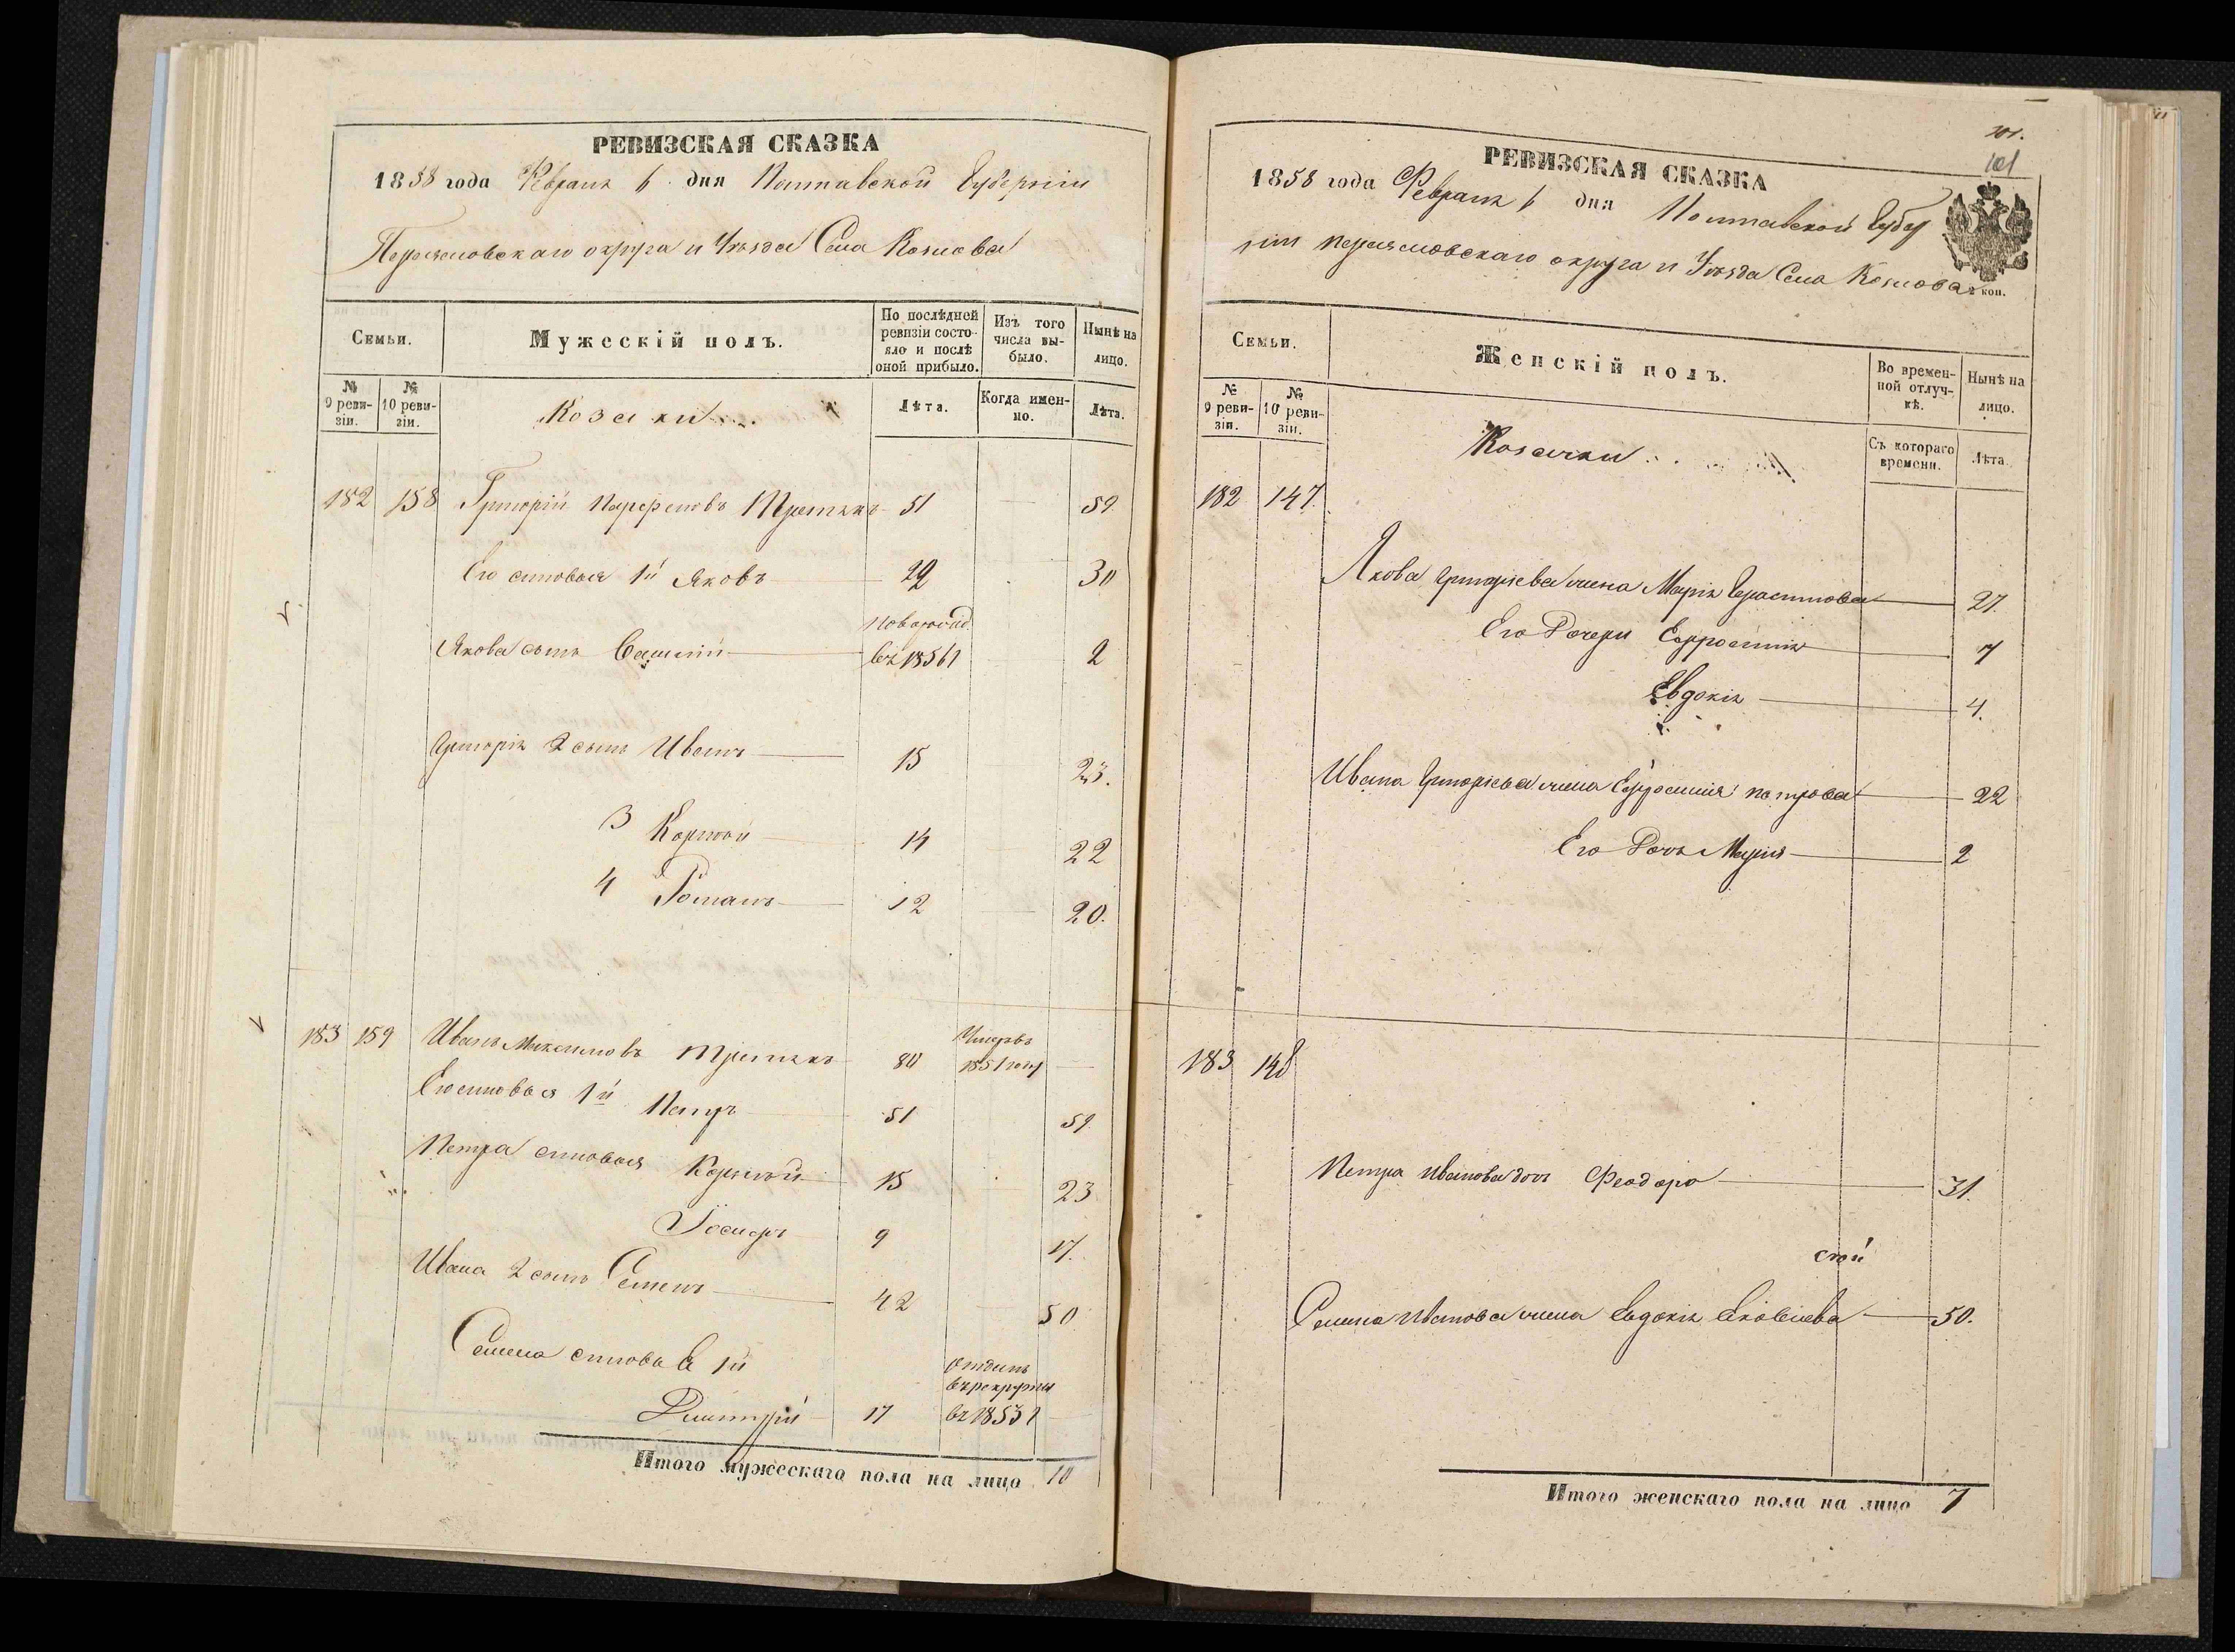 РЕВИЗСКАЯ СКАЗКА
1858 года Февраля 6 дня Полтавской Губерніи
Переясловскаго округа и Уѣзда Села Козлова
Семьи.
Мужескій полъ.
По послѣдней ревизіи состояло и послѣ оной прибыло.
Изъ того числа выбыло.
Нынѣ на лицо.
№ 9 ревизіи.
№ 10 ревизіи.
Козаки
Лѣта.
Когда именно.
Лѣта.
182 158 Григорій Парфеновъ Третякъ 51 59
Его сыновья 1й Яковъ 22 30
Новорожд
Якова сынъ Василій въ 1856 г 2
Григорія 2 сынъ Иванъ 15 23.
3 Корней 14 22
4 Романъ 12 20.
183 159 Иванъ Максимовъ Третякъ 80 Умеръ 1851 году
Его сыновья 1й Петръ 51 59.
Петра сыновья Корней 15 23
Іосифъ 9 17.
Ивана 2 сынъ Семенъ 42 50
Семена сыновья 1й
Дмитрій 17 отданъ в рекруты въ 1853 г
Итого мужескаго пола на лицо 10
201.
101
РЕВИЗСКАЯ СКАЗКА
1858 года Февраля 6 дня Полтавской Губер
ніи Переясловскаго округа и Уѣзда Села Козлова
коп.
Семьи.
Женскій полъ.
Во временной отлучкѣ.
Нынѣ на лицо.
№ 9 ревизіи.
№ 10 ревизіи.
Козачки
Съ котораго времени.
Лѣта.
182 147
Якова Григорьева жена Марія Герасимова 27.
Его Дочери Ефросинія 7
Евдокія 4.
Ивана Григорьева жена Ефросинія Петрова 22
Его Дочь Марія 2
183 148
Петра Иванова дочь Феодора 31.
Семена Иванова жена Евдокія 50.
Итого женскаго пола на лицо 7